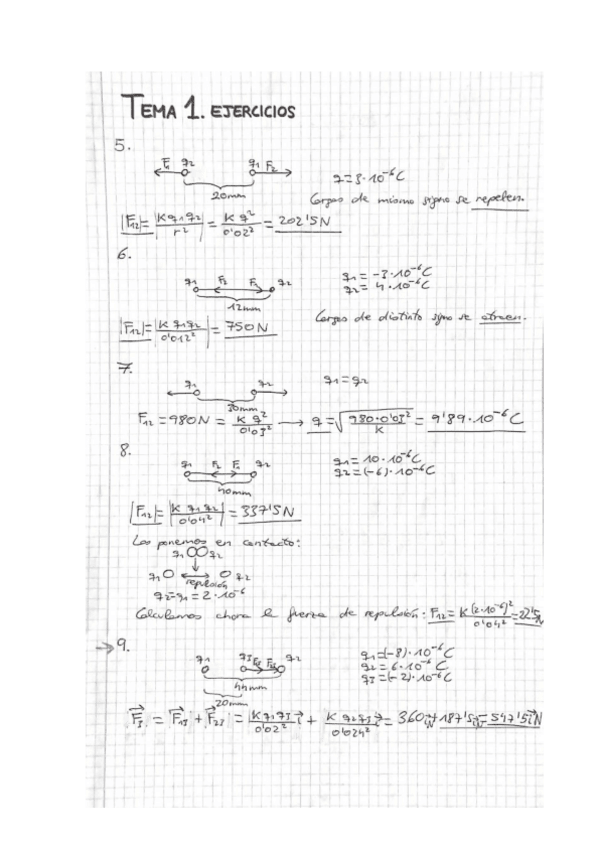 TEMA 1. EJERCICIOS
5.
F₁ q₂ q₁ F₂
q=3·10⁻⁶C
20mm
Cargas de mismo signo se repelen.
|F₁₂|=|K q₁ q₂ / r²| = K q² / 0'02² = 202'5N
6.
q₁ F₂ F₁ q₂
q₁ = -3·10⁻⁶C
q₂ = 4·10⁻⁶C
12mm
Cargas de distinto signo se atraen.
|F₁₂|=|K q₁q₂ / 0'012²| = 750N
7.
q₁ q₂
q₁=q₂
30mm
F₁₂=980N = K q² / 0'03² → q=√(980·0'03² / K) = 9'89·10⁻⁶C
8.
q₁ F₂ F₁ q₂
q₁= 10·10⁻⁶C
q₂=(-6)·10⁻⁶C
40mm
|F₁₂|=|K q₁q₂ / 0'04²| = 337'5N
Los ponemos en contacto:
q₁ q₂
q₁ q₂
repulsión
q₂=q₁=2·10⁻⁶
Calculamos ahora la fuerza de repulsión: F₁₂= K(2·10⁻⁶)² / 0'04² =22'5N
→ 9.
q₁ q₃ q₂
q₁=(-8)·10⁻⁶C
q₂= 6·10⁻⁶C
q₃=(-2)·10⁻⁶C
44mm
20mm
|F⃗₃| = |F⃗₁₃ + F⃗₂₃| = K q₁q₃ / 0'02² i⃗ + K q₂q₃ / 0'024² i⃗ = 360i⃗N+187'5i⃗N=547'5i⃗N